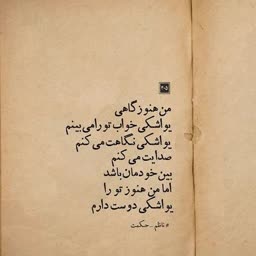 ۲۰۵
من هنوز گاهی
یواشکی خواب تو را می بینم
یواشکی نگاهت می کنم
صدایت می کنم
بین خودمان باشد
اما من هنوز تو را
یواشکی دوست دارم
#ناظم_حکمت